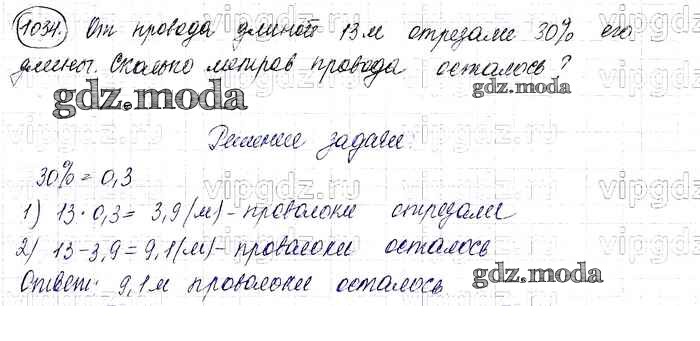 1034. От провода длиной 13 м отрезали 30% его
длины. Сколько метров провода осталось?
gdz.moda
gdz.moda
Решение задачи:
vipgdz.ru
30% = 0,3
1) 13 · 0,3 = 3,9 (м) - проволоки отрезали
2) 13 - 3,9 = 9,1 (м) - проволоки осталось
Ответ: 9,1 м проволоки осталось
gdz.moda